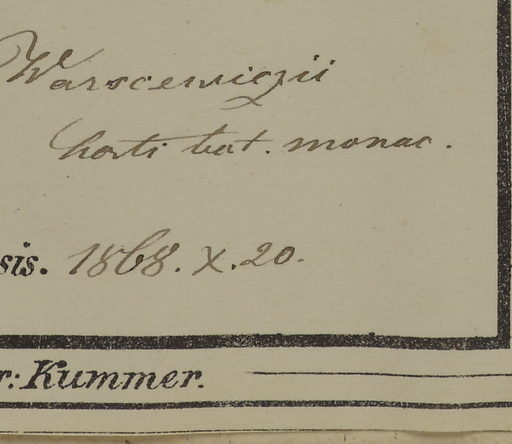 Warscewiczii
horti bot. monac.
sis. 1868. X. 20.
r: Kummer.